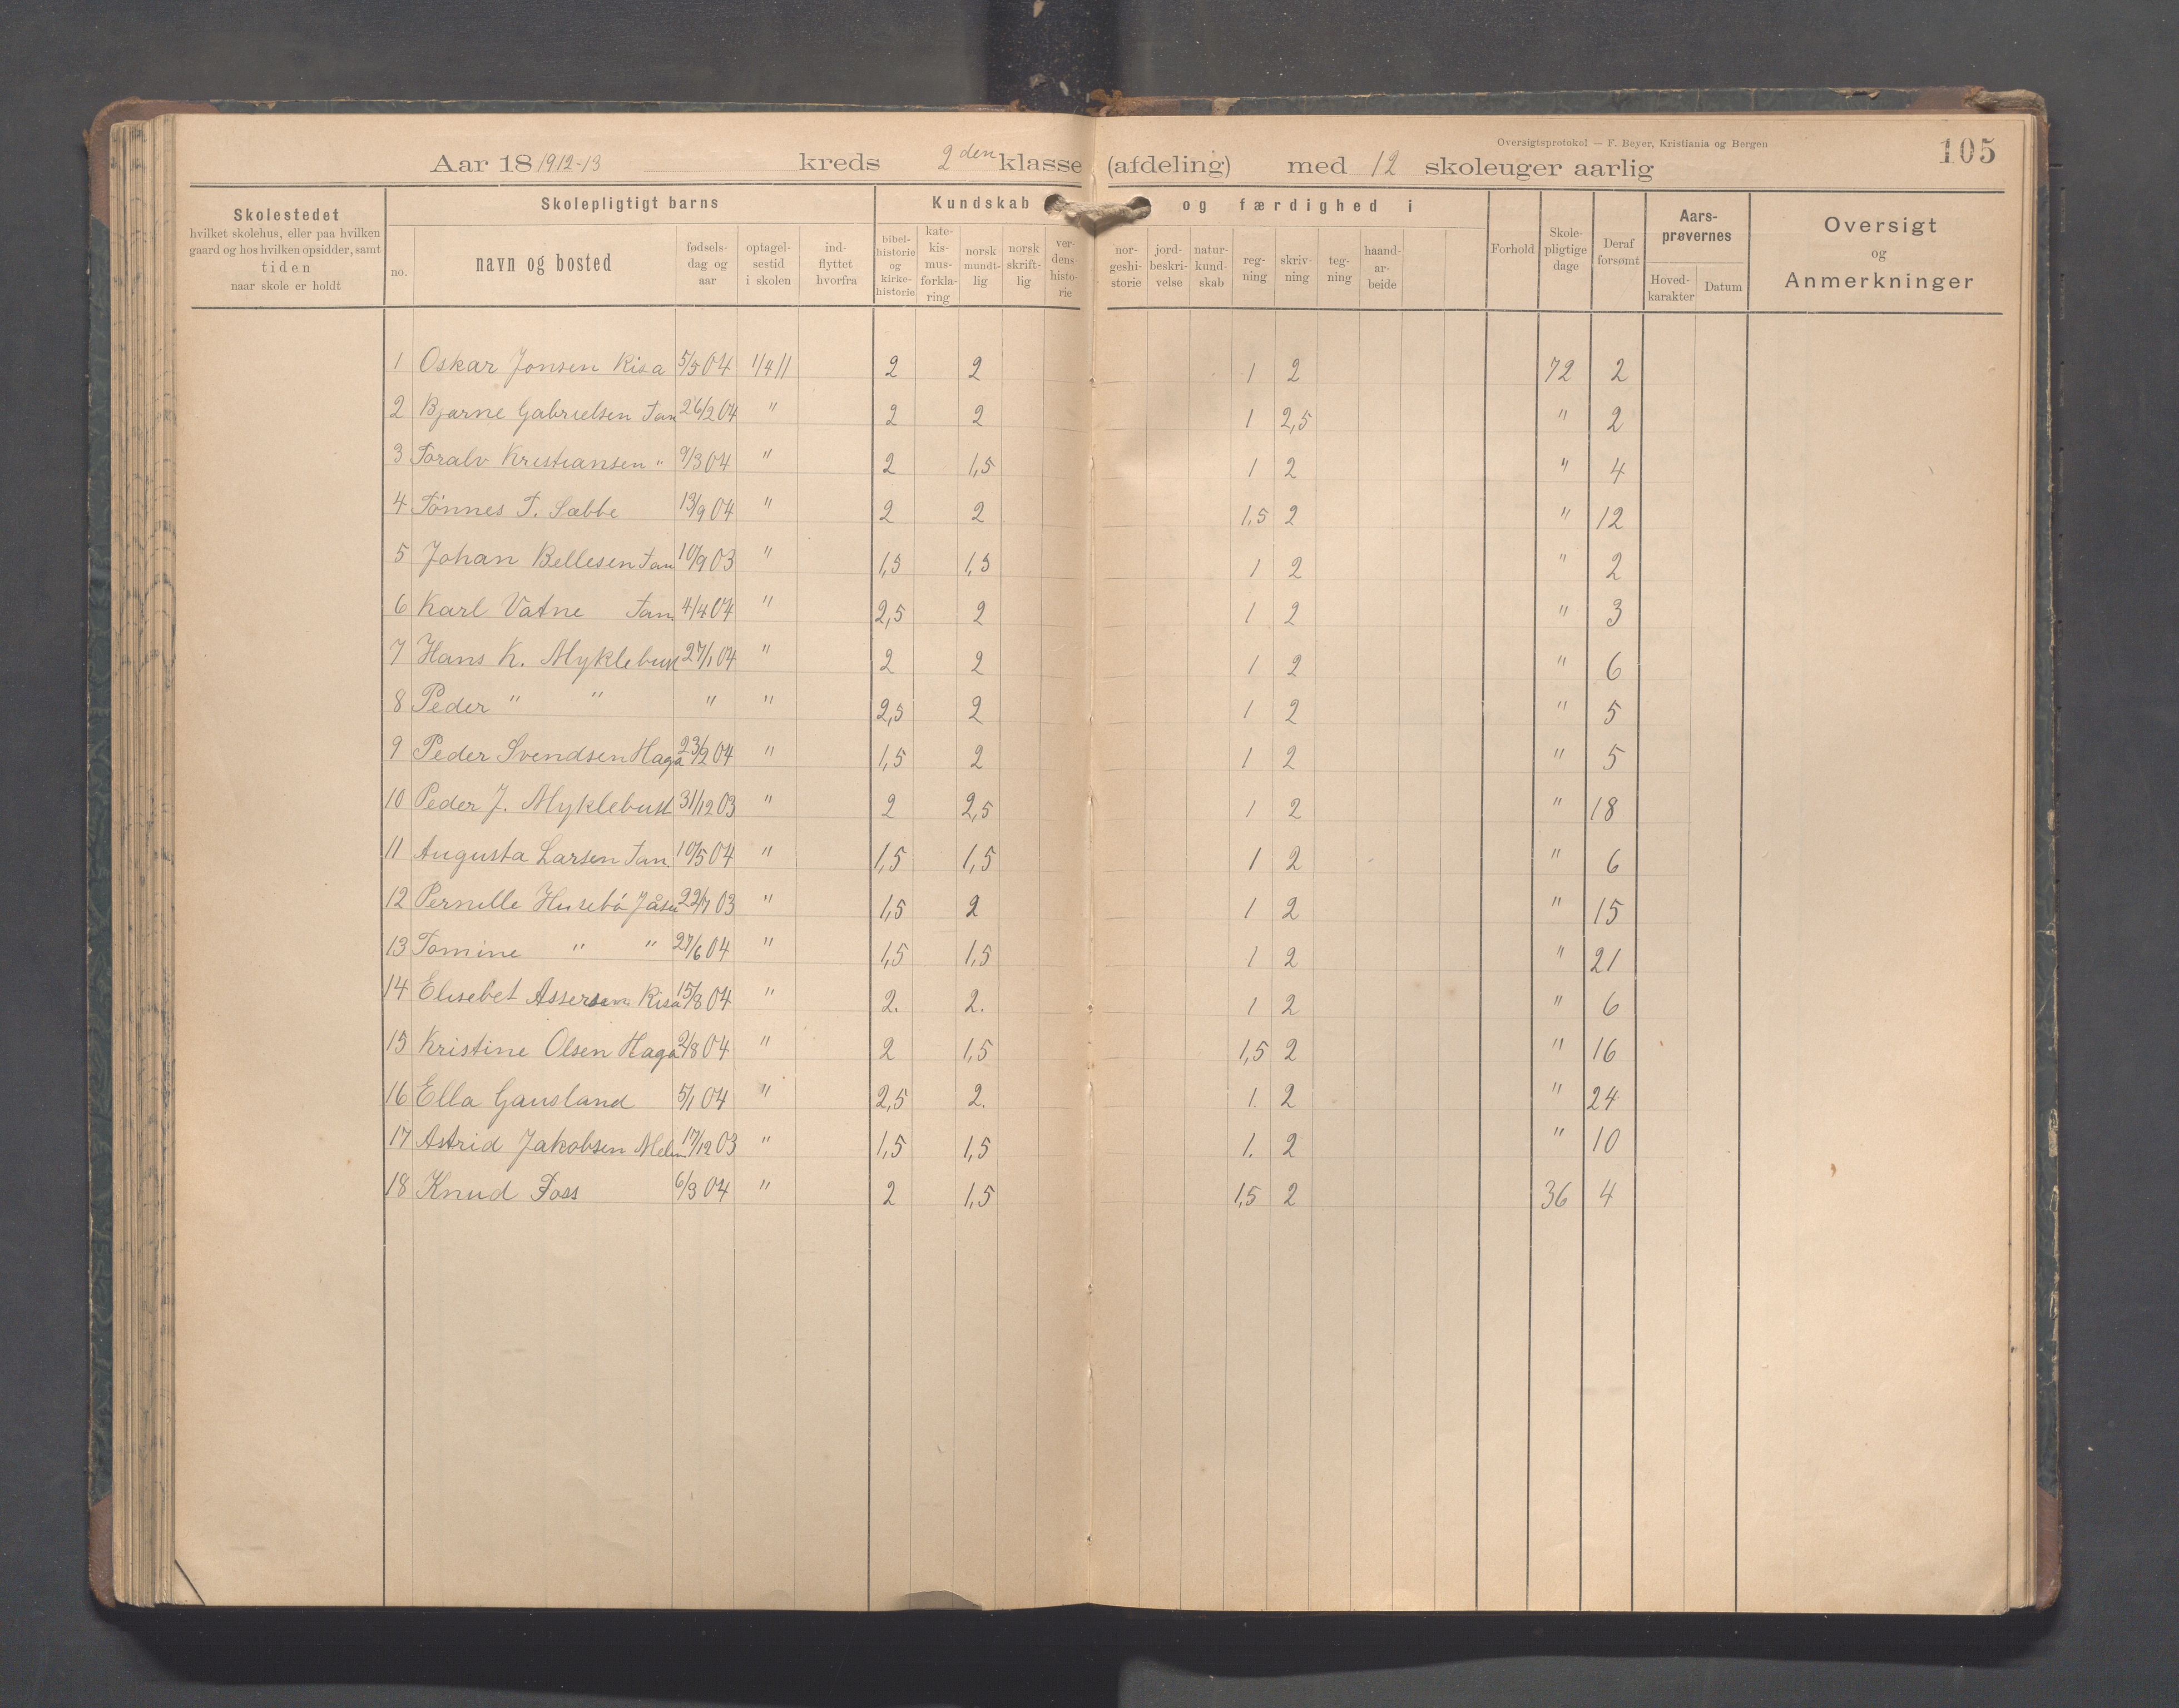 Oversigtsprotokol — F. Beyer, Kristiania og Bergen
105
Aar 18 1912-13 kreds 2den klasse (afdeling) med 12 skoleuger aarlig
Skolestedet hvilket skolehus, eller paa hvilken gaard og hos hvilken opsidder, samt tiden naar skole er holdt
Skolepligtigt barns
Kundskab og færdighed i
no.
navn og bosted
fødsels-dag og aar
optagel-sestid i skolen
ind-flyttet hvorfra
bibel-historie og kirke-historie
kate-kis-mus-forkla-ring
norsk mundt-lig
norsk skrift-lig
ver-dens-histo-rie
nor-geshi-storie
jord-beskri-velse
natur-kund-skab
reg-ning
skriv-ning
teg-ning
haand-ar-beide
Forhold
Skole-pligtige dage
Deraf forsømt
Aars-prøvernes
Hoved-karakter
Datum
Oversigt og Anmerkninger
1 Oskar Jonsen Risa 5/5 04 1/4 11 2 2 1 2 72 2
2 Bjarne Gabrielsen Tan 26/2 04 " 2 2 1 2,5 " 2
3 Toralv Kristiansen " 9/3 04 " 2 1,5 1 2 " 4
4 Tønnes T. Sæbbe 13/9 04 " 2 2 1,5 2 " 12
5 Johan Bellesen Tan 10/9 03 " 1,5 1,5 1 2 " 2
6 Karl Vatne Tan. 4/4 04 " 2,5 2 1 2 " 3
7 Hans K. Myklebust 27/1 04 " 2 2 1 2 " 6
8 Peder " " " " 2,5 2 1 2 " 5
9 Peder Svendsen Haga 23/2 04 " 1,5 2 1 2 " 5
10 Peder J. Myklebust 31/12 03 " 2 2,5 1 2 " 18
11 Augusta Larsen Tan. 10/5 04 " 1,5 1,5 1 2 " 6
12 Pernille Husebø 03 " 1,5 2 1 2 " 15
13 Tomine " " 27/6 04 " 1,5 1,5 1 2 " 21
14 Elisebet Assersen Risa 15/8 04 " 2. 2. 1 2 " 6
15 Kristine Olsen Haga 2/8 04 " 2 1,5 1,5 2 " 16
16 Ella Gausland 5/1 04 " 2,5 2. 1. 2 " 24
17 Astrid Jakobsen 17/12 03 " 1,5 1,5 1. 2 " 10
18 Knud Foss 6/3 04 " 2 1,5 1,5 2 36 4